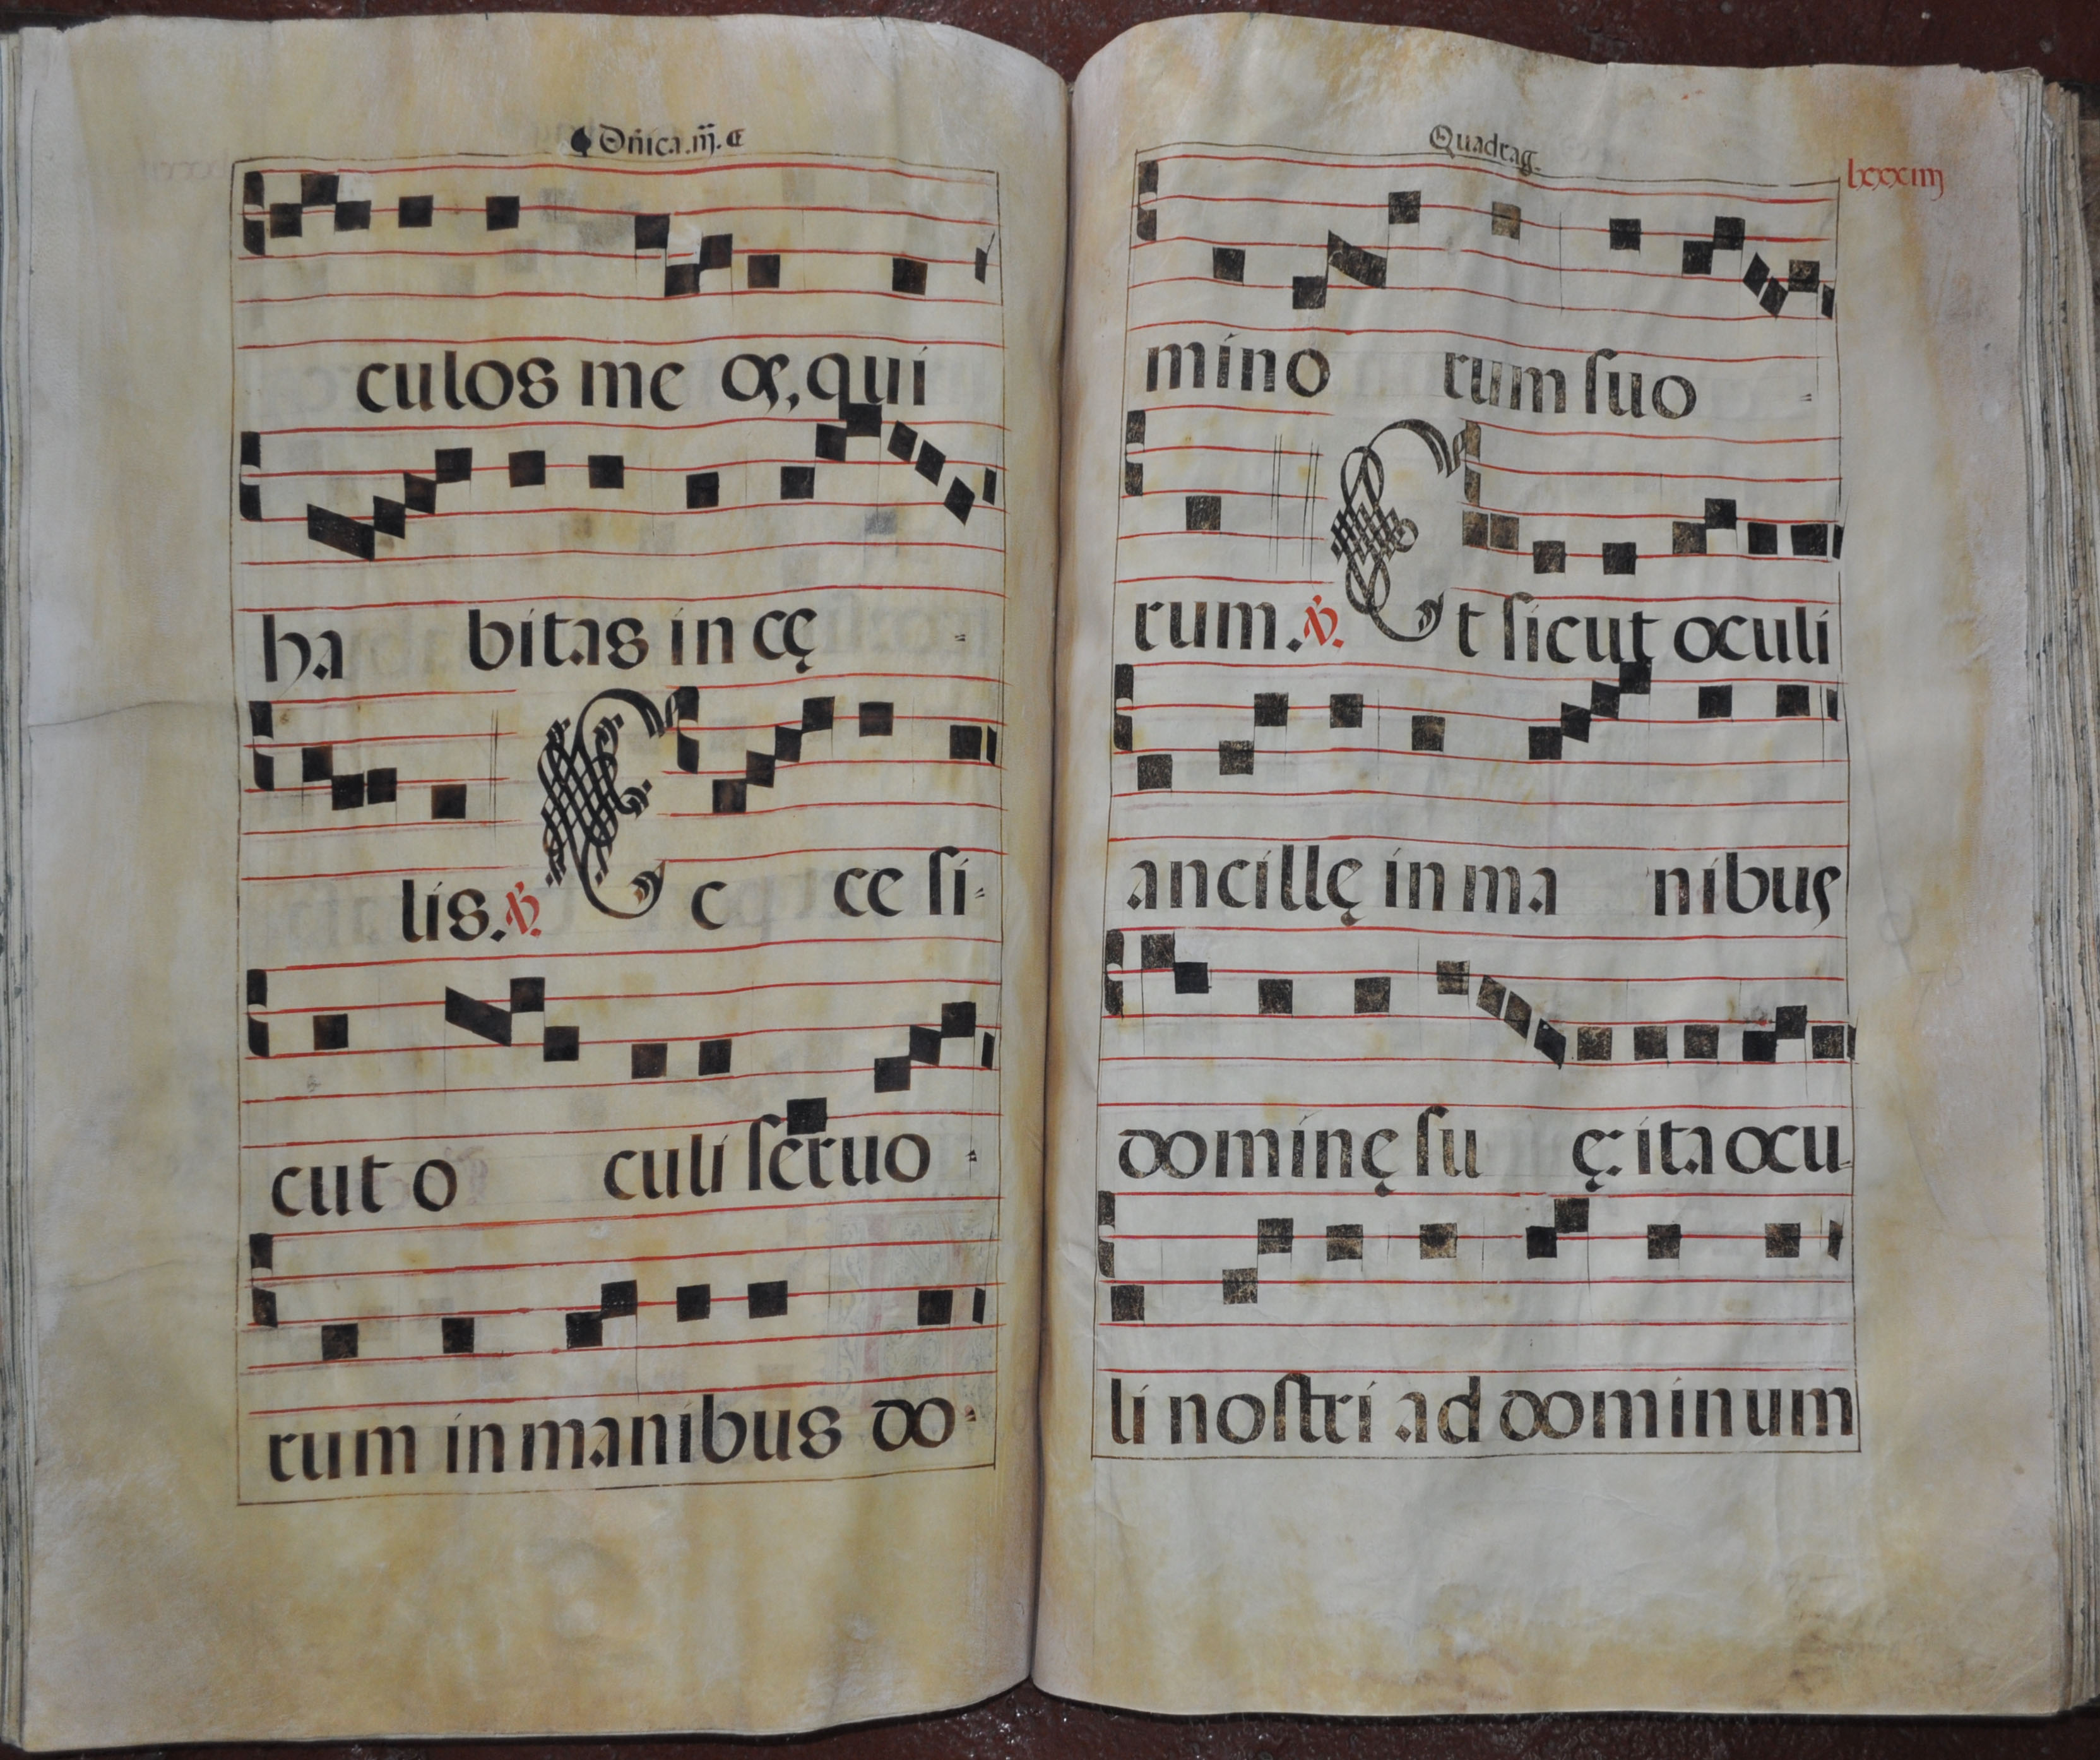 Dñica.iij.
culos me os, qui
ha bitas in cę -
lis. ℣. E c ce si-
cut o culi seruo -
rum in manibus do-
Quadrag.
lxxxiiij
mino rum suo -
rum. ℣. Et sicut oculi
ancillę in ma nibus
dominę su ę: ita ocu-
li nostri ad dominum